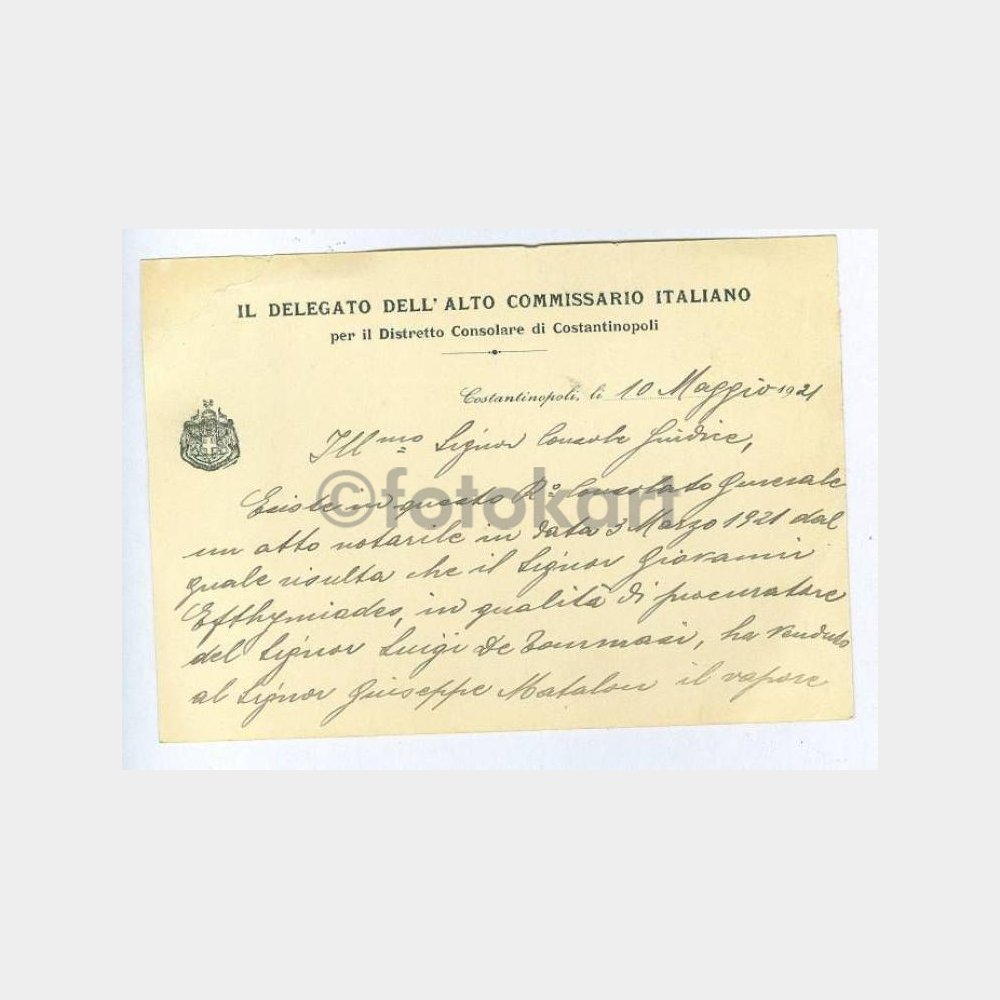 IL DELEGATO DELL' ALTO COMMISSARIO ITALIANO
per il Distretto Consolare di Costantinopoli
Costantinopoli, li 10 Maggio 1921
Ill.mo Signor Console Giudice,
©fotokart
Esiste in questo R.o Consolato Generale
un atto notarile in data 3 Marzo 1921 dal
quale risulta che il Signor Giovanni
Efthymiades, in qualità di procuratore
del Signor Luigi De Tommasi, ha venduto
al Signor Giuseppe Matalon il vapore